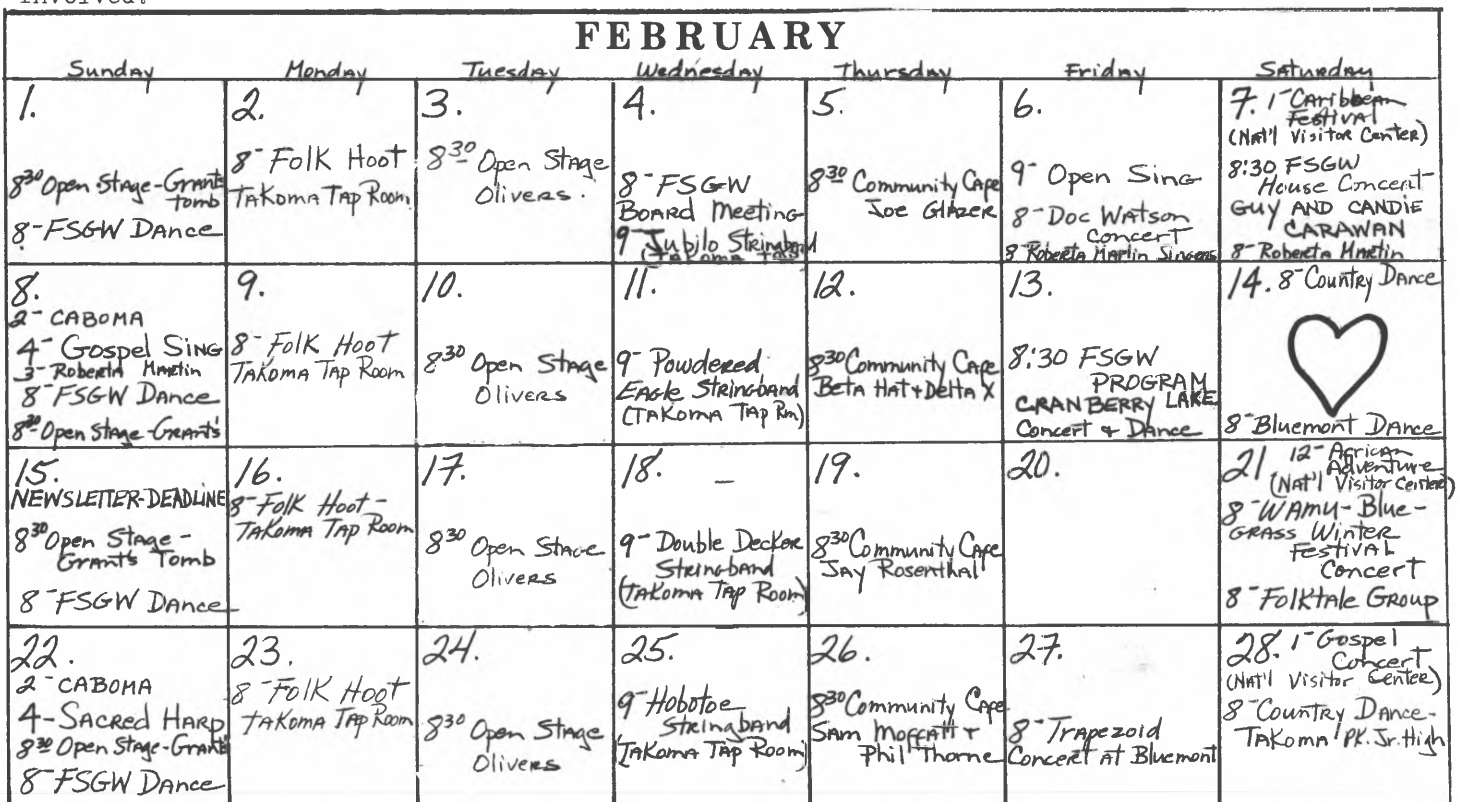 involved.
FEBRUARY
Sunday Monday Tuesday Wednesday Thursday Friday Saturday
1.
8³⁰ Open Stage-Grant's
Tomb
8-FSGW Dance
2.
8-Folk Hoot
Takoma Tap Room
3.
8³⁰ Open Stage
Olivers.
4.
8-FSGW
Board Meeting
9-Jubilo Stringband
(Takoma Tap
5.
8³⁰ Community Cafe
Joe Glazer
6.
9-Open Sing
8-Doc Watson
Concert
8-Roberta Martin Singers
7. 1-Caribbean
Festival
(Nat'l Visitor Center)
8:30 FSGW
House Concert
GUY AND CANDIE
CARAWAN
8-Roberta Martin
8.
2-CABOMA
4-Gospel Sing
3-Roberta Martin
8-FSGW Dance
8³⁰-Open Stage-Grant's
9.
8-Folk Hoot
Takoma Tap Room
10.
8³⁰ Open Stage
Olivers
11.
9-Powdered
Eagle Stringband
(Takoma Tap Rm)
12.
8³⁰ Community Cafe
Beta Hat + Delta X
13.
8:30 FSGW
PROGRAM
CRANBERRY LAKE
Concert + Dance
14. 8-Country Dance
8-Bluemont Dance
15.
NEWSLETTER-DEADLINE
8³⁰ Open Stage-
Grant's Tomb
8-FSGW Dance
16.
8-Folk Hoot-
Takoma Tap Room
17.
8³⁰ Open Stage
Olivers
18.
9-Double Decker
Stringband
(Takoma Tap Room)
19.
8³⁰ Community Cafe
Jay Rosenthal
20.
21 12-African
Adventure
(Nat'l Visitor Center)
8-WAMU-Blue-
grass Winter
Festival
Concert
8-Folktale Group
22.
2-CABOMA
4-Sacred Harp
8³⁰ Open Stage-Grant's
8-FSGW Dance
23.
8-Folk Hoot
Takoma Tap Room
24.
8³⁰ Open Stage
Olivers
25.
9-Hobotoe
Stringband
(Takoma Tap Room)
26.
8³⁰ Community Cafe
Sam Moffatt +
Phil Thorne
27.
8-Trapezoid
Concert at Bluemont
28. 1-Gospel
Concert
(Nat'l Visitor Center)
8-Country Dance-
Takoma Pk. Jr. High